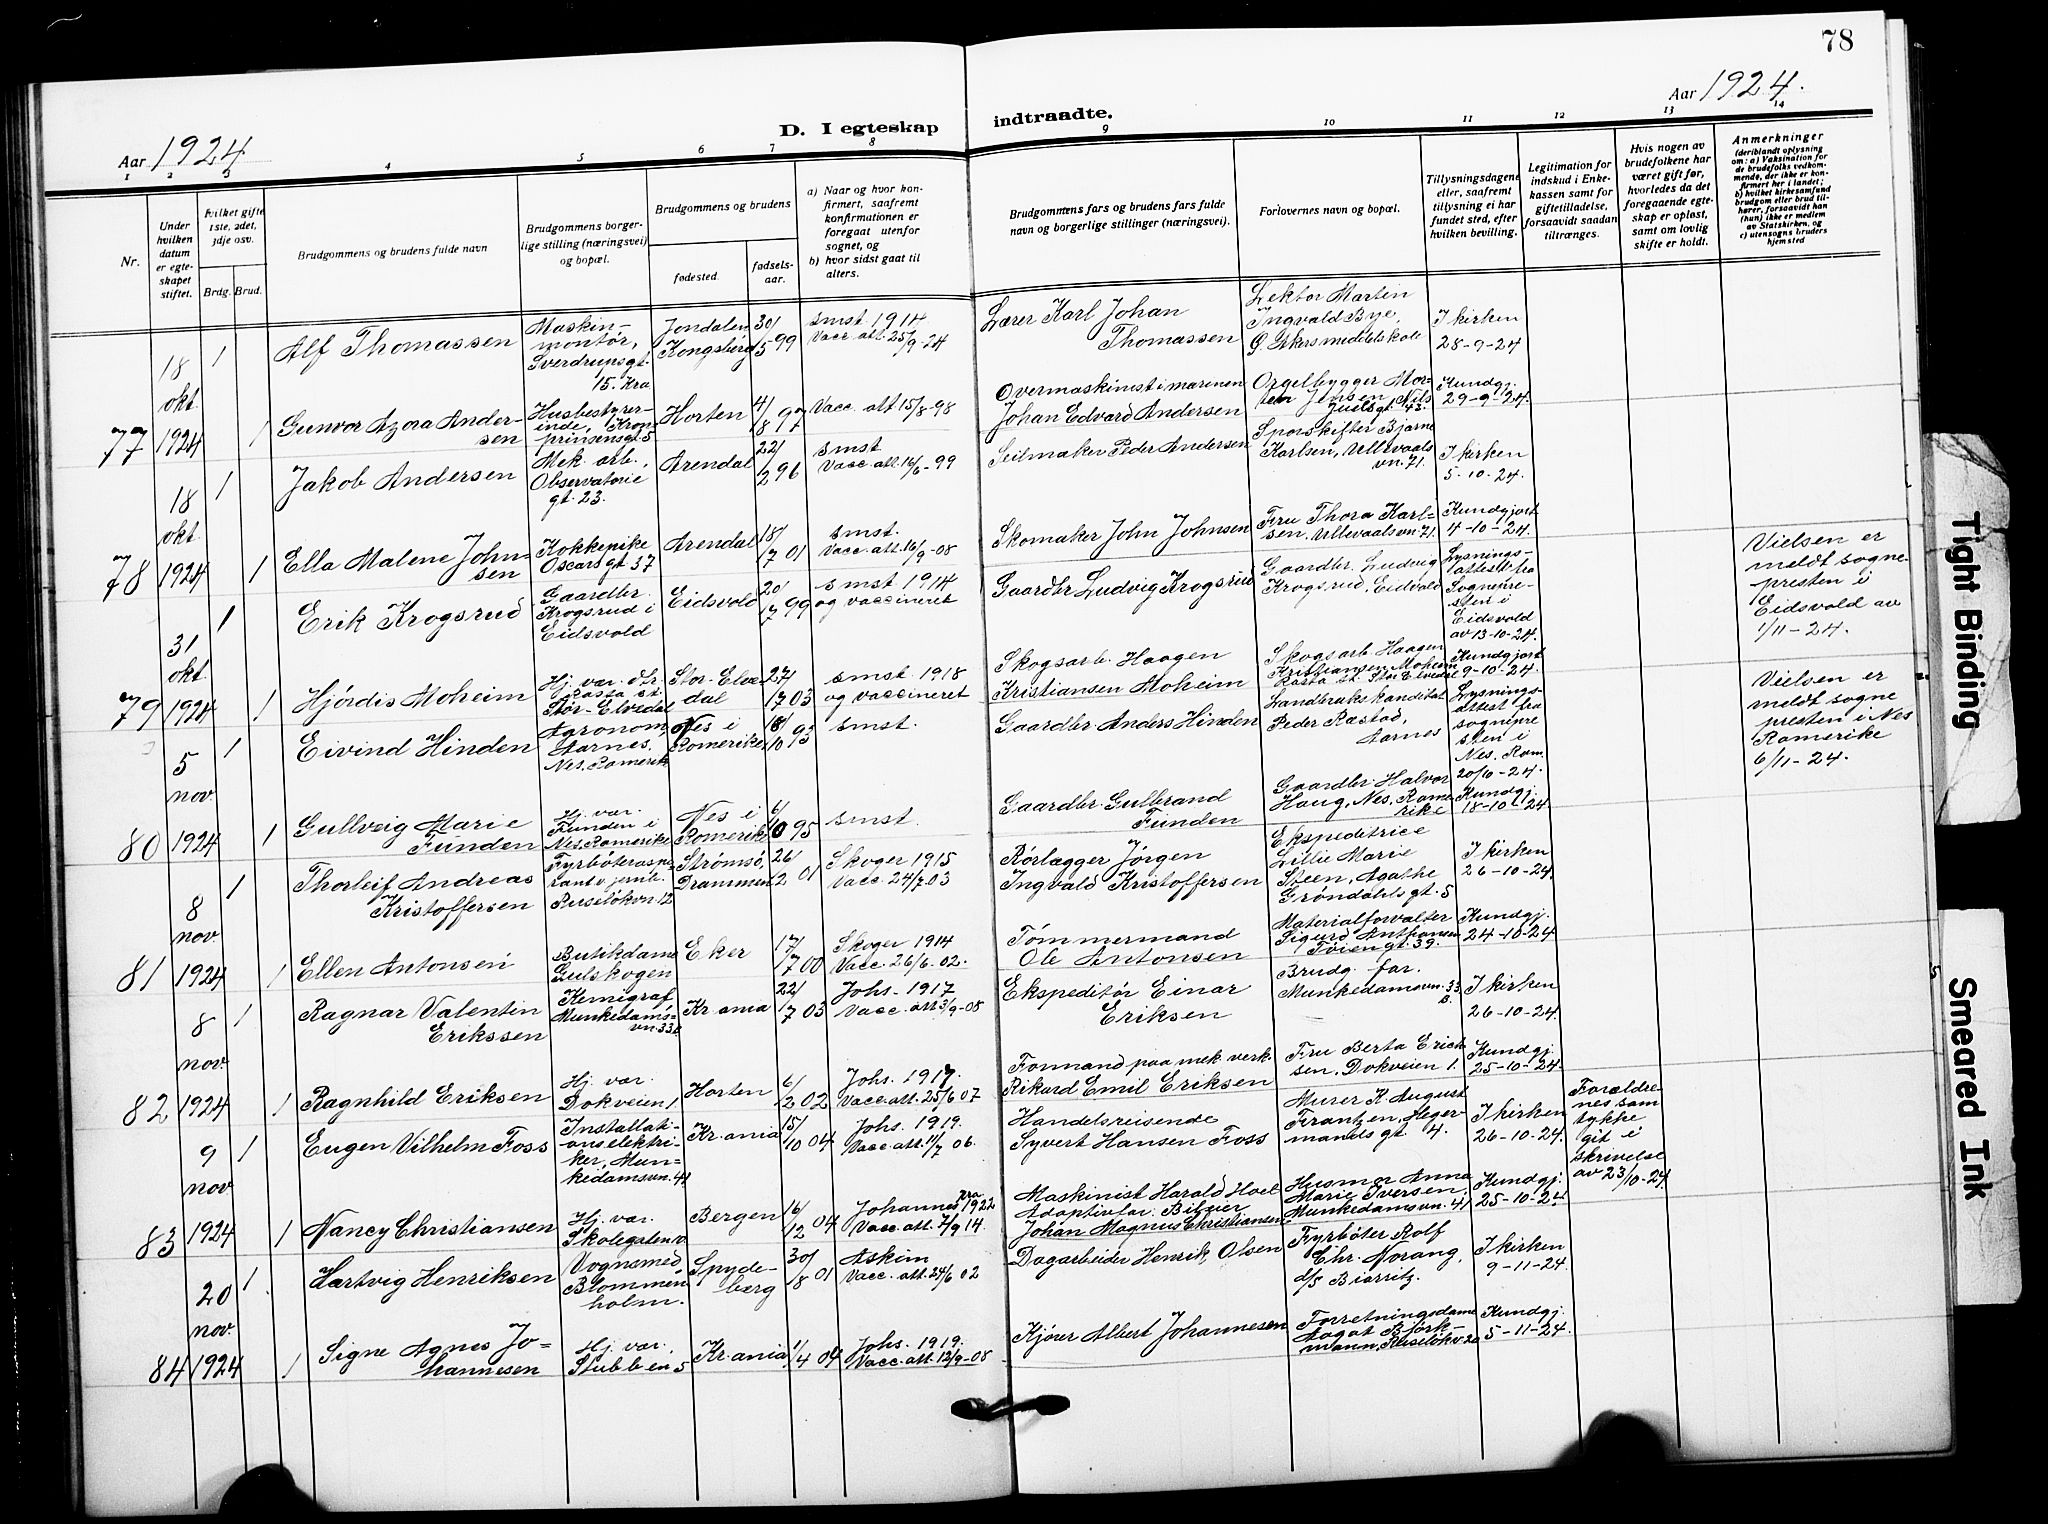 78
Aar 1924
D. I egteskap
indtraadte.
Aar 1924.
1 2 3 4 5 6 7 8 9 10 11 12 13 14
Nr.
Under hvilken datum er egteskapet stiftet.
Hvilket gifte 1ste, 2det, 3dje osv.
Brdg. Brud.
Brudgommens og brudens fulde navn
Brudgommens borgerlige stilling (næringsvei) og bopæl.
Brudgommens og brudens
fødested.
fødselsaar.
a) Naar og hvor konfirmert, saafremt konfirmationen er foregaat utenfor sognet, og
b) hvor sidst gaat til alters.
Brudgommens fars og brudens fars fulde navn og borgerlige stillinger (næringsvei).
Forlovernes navn og bopæl.
Tillysningsdagene eller, saafremt tillysning ei har fundet sted, efter hvilken bevilling.
Legitimation for indskud i Enkekassen samt for giftetilladelse, forsaavidt saadan tiltrænges.
Hvis nogen av brudefolkene har været gift før, hvorledes da det foregaaende egteskap er opløst, samt om lovlig skifte er holdt.
Anmerkninger
(deriblandt oplysning om: a) Vaksination for de brudefolks vedkommende, der ikke er konfirmert her i landet; b) hvilket kirkesamfund brudgom eller brud tilhører, forsaavidt han (hun) ikke er medlem av Statskirken, og c) utensogns bruders hjemsted
77
18 okt. 1924
1
Alf Thomassen
Maskinmontør, Sverdrupsgt. 15. Kra
Jondalen Kongsberg
30/5 99
smst 1914 Vacc. att. 25/9-24
Lærer Karl Johan Thomassen
Lektor Martin Ingvald Bye,
I kirken 28-9-24
1
Gunvor Azora Andersen
Husbestyrerinde, Kronprinsensgt. 5
Horten
4/8 97
Vacc. att 15/8-98
Overmaskinist i marinen Johan Edvard Andersen
Orgelbygger Morten Jensen, Nils Juelsgt. 43.
Kundgj. 29-9-24.
78
18 okt. 1924
1
Jakob Andersen
Mek. arb., Observatoriegt. 23.
Arendal
22/2 96
smst Vacc. att. 16/6-99
Seilmaker Peder Andersen
Sporskifter Bjarne Karlsen, Ullevaalsvn. 71.
I kirken 5-10-24.
1
Ella Malene Johnsen
Kokkepike Oscarsgt. 37
Arendal
18/7 01
smst. Vacc. att. 16/9-08
Skomaker John Johnsen
Fru Thora Karlsen, Ullevaalsvn. 71.
Kundgjort 4-10-24.
79
31 okt. 1924
1
Erik Krogsrud
Gaardbr. Krogsrud i Eidsvold
Eidsvold
20/7 99
smst 1914 og vaccineret
Gaardbr. Ludvig Krogsrud
Gaardbr. Ludvig Krogsrud, Eidsvold
Lysningsattest fra Sognepresten i Eidsvold av 13-10-24.
Vielsen er meldt sognepresten i Eidsvold av 1/11-24.
1
Hjørdis Moheim
Hj. vær. Rasta st. Stor-Elvedal
Stor-Elvedal
27/1 03
smst. 1918 og vaccineret
Skogsarb. Haagen Kristiansen Moheim
Skogsarb Haagen Kristiansen Moheim Rasta st. Stor Elvedal
Kundgjort 9-10-24.
80
5 nov. 1924
1
Eivind Hinden
Agronom, Aarnes, Nes. Romerike
Nes i Romerike
18/10 93
smst.
Gaardbr. Anders Hinden
Landbrukskandidat Peder Rastad, Aarnes
Lysningsattest fra sognepresten i Nes. Rom. 20/10-24.
Vielsen er meldt sognepresten i Nes Romerike 6/11-24.
1
Gullveig Marie Funden
Hj. vær. Funden i Nes. Romerike
Nes i Romerike
6/10 95
smst.
Gaardbr. Gulbrand Funden
Gaardbr. Halvor Haug, Nes, Romerike
Kundgj. 18-10-24
81
8 nov. 1924
1
Thorleif Andreas Kristoffersen
Fyrbøteraspirant v. jernb. Ruseløkvn. 12
Strømsø, Drammen
26/2 01
Skoger 1915 Vacc. 24/7 03
Rørlægger Jørgen Ingvald Kristoffersen
Ekspeditrice Lillie Marie Steen, Agathe Grøndahlsgt. 5
I kirken 26-10-24.
1
Ellen Antonsen
Butikdame Gulskogen
Eker
17/7 00
Skoger 1914 Vacc. 26/6-02.
Tømmermand Ole Antonsen
Materialforvalter Sigurd Antonsen Tøiengt. 39.
Kundgj. 24-10-24
82
8 nov. 1924
1
Ragnar Valentin Erikssen
Kemigraf, Munkedamsvn. 33
Kr.ania
22/7 03
Johs. 1917 Vacc. att 3/9-08
Ekspeditør Einar Eriksen
Brudg. far. Munkedamsvn. 33 B.
I kirken 26-10-24.
1
Ragnhild Eriksen
Hj. vær. Dokveien 1.
Horten
6/2 02
Johs. 1917. Vacc. att. 25/6 07
Formand paa mek. verk. Rikard Emil Eriksen
Fru Berta Ericksen, Dokveien 1.
Kundgj. 25-10-24.
83
9 nov 1924
1
Eugen Vilhelm Foss
Installationselektriker, Munkedamsvn. 41
Kr.ania
15/10 04
Johs. 1919. Vacc. att. 11/7 06.
Handelsreisende Syvert Hansen Foss
Murer K August Frantzen, Hegermandsgt. 4.
I kirken 26-10-24.
Forældrenes samtykke git i skrivelse av 23/10-24.
1
Nancy Christiansen
Hj. vær. Skolegaten
Bergen
16/12 04
Johannes 1922 Vacc. att. 7/9 14.
Maskinist Harald Hoel Adoptivfar. Johan Magnus Christiansen
Husmor Anna Marie Iversen, Munkedamsvn. 41
Kundgj. 25-10-24
84
20 nov. 1924
1
Hartvig Henriksen
Vognsmed Blommenholm.
Spydeberg
30/8 01
Askim Vacc. att. 24/6 02
Dagarbeider Henrik Olsen
Fyrbøter Rolf Chr. Norang, d/s Biarritz.
I kirken 9-11-24.
1
Signe Agnes Johannesen
Hj. vær, Stubben 5
Kr.ania
1/4 04
Johs. 1919. Vacc. att. 12/9-08
Kjører Albert Johannesen
Forretningsdame Aagot Bjørkmann, Ruseløkv 20
Kundgj. 5-11-24.
Tight Binding
Smeared Ink